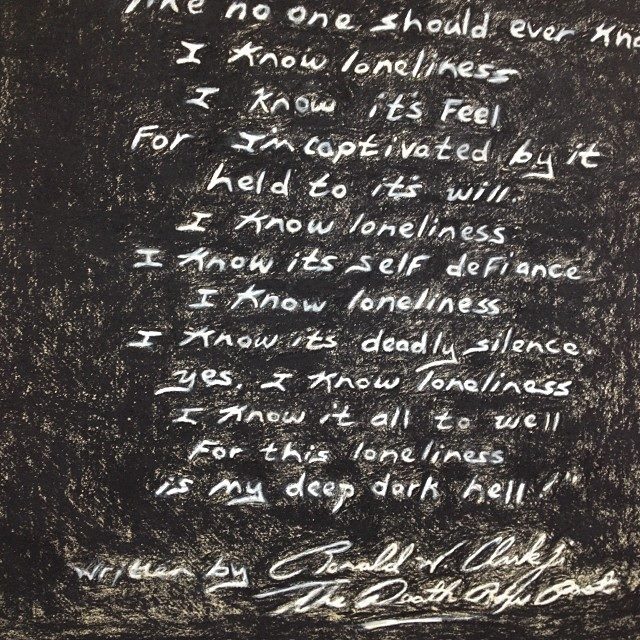 like no one should ever kno
I know loneliness
I know it's Feel
For I'm captivated by it
held to it's will.
I know loneliness
I know its self defiance
I know loneliness
I know its deadly silence.
yes, I know loneliness
I know it all to well
For this loneliness
is my deep dark hell!"
written by Ronald W Clark jr
The Death Row Poet